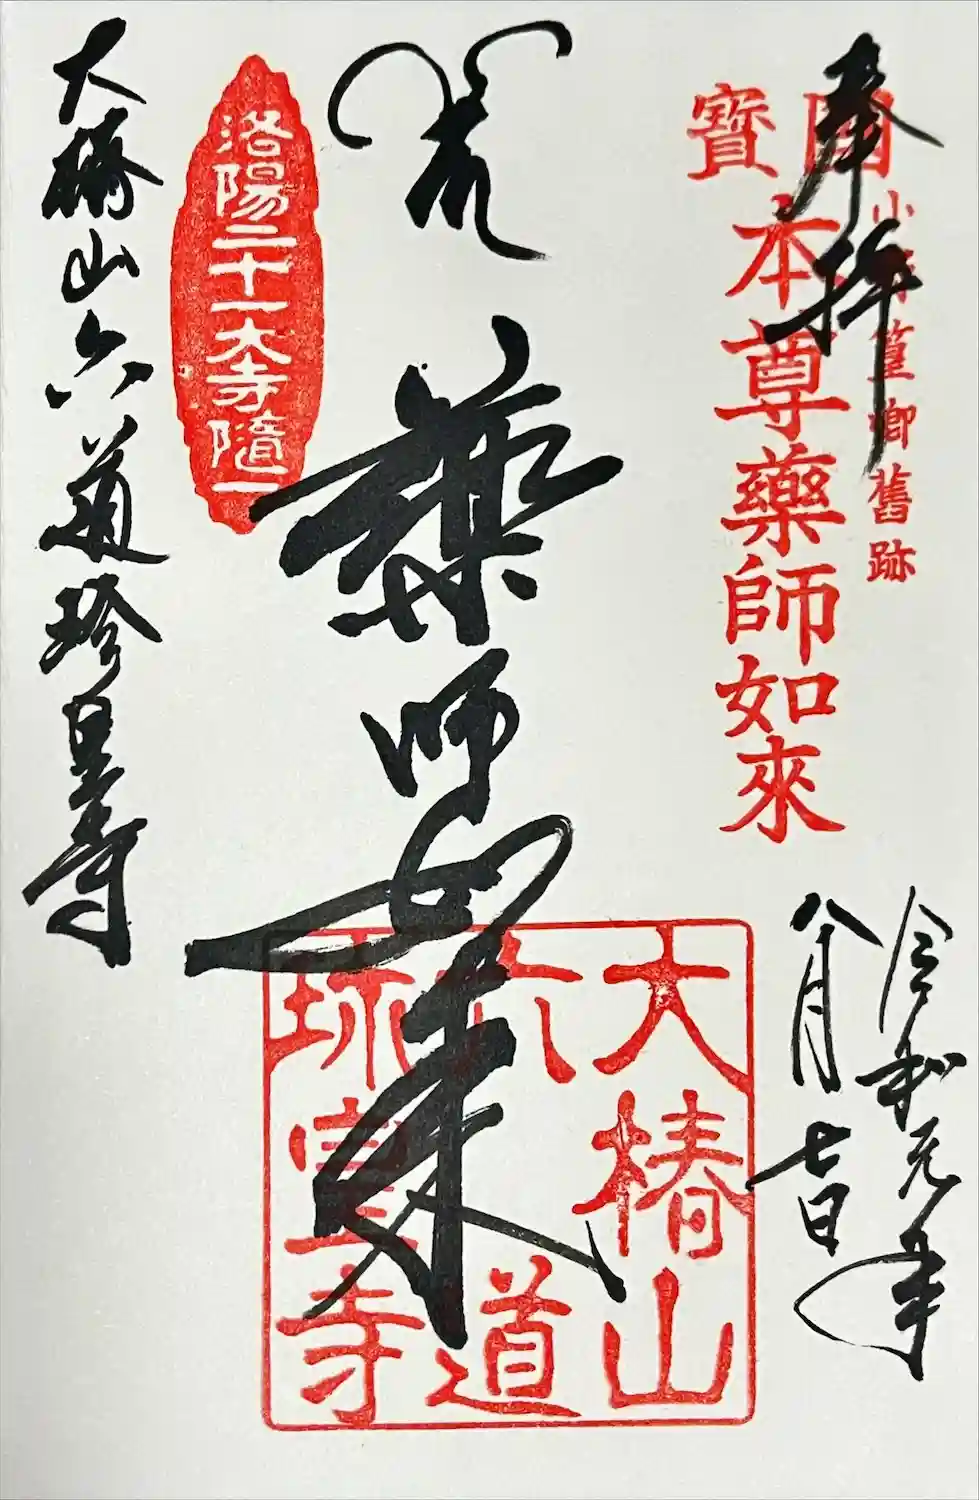 奉拝
小野篁卿舊跡
國寶
本尊藥師如來
令和元年
八月七日
藥師如来
大椿山
六道
珎皇寺
洛陽二十一大寺隨一
大椿山六道珍皇寺